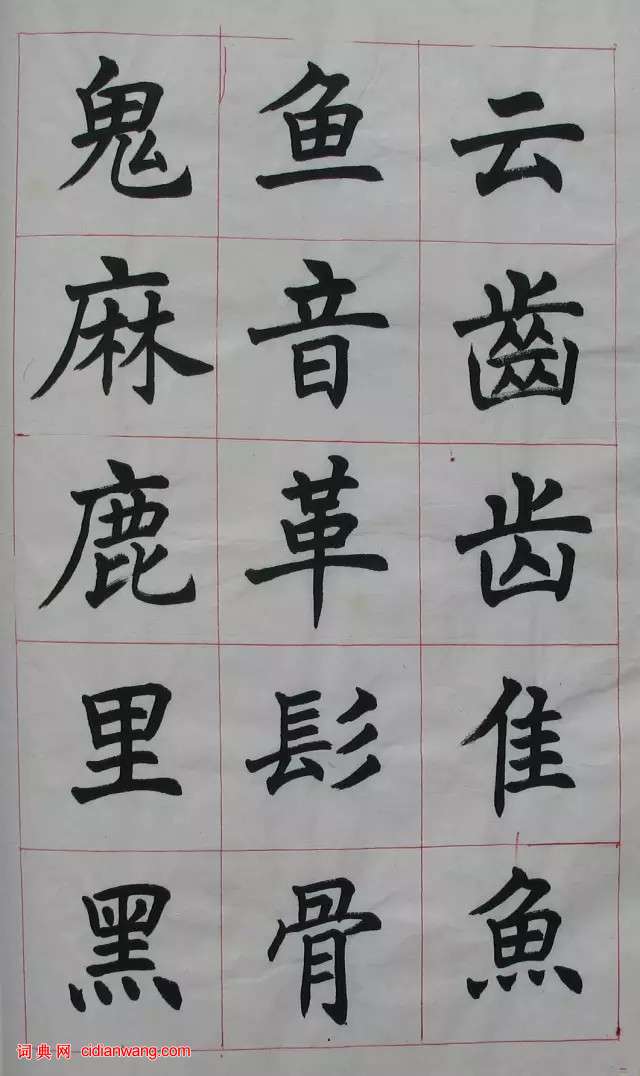 云齒齿隹魚
鱼音革髟骨
鬼麻鹿里黑
词典网 cidianwang.com